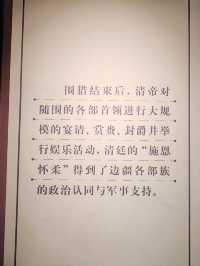 围猎结束后，清帝对
随围的各部首领进行大规
模的宴请、赏赉、封爵并举
行娱乐活动，清廷的“施恩
怀柔”得到了边疆各部族
的政治认同与军事支持。